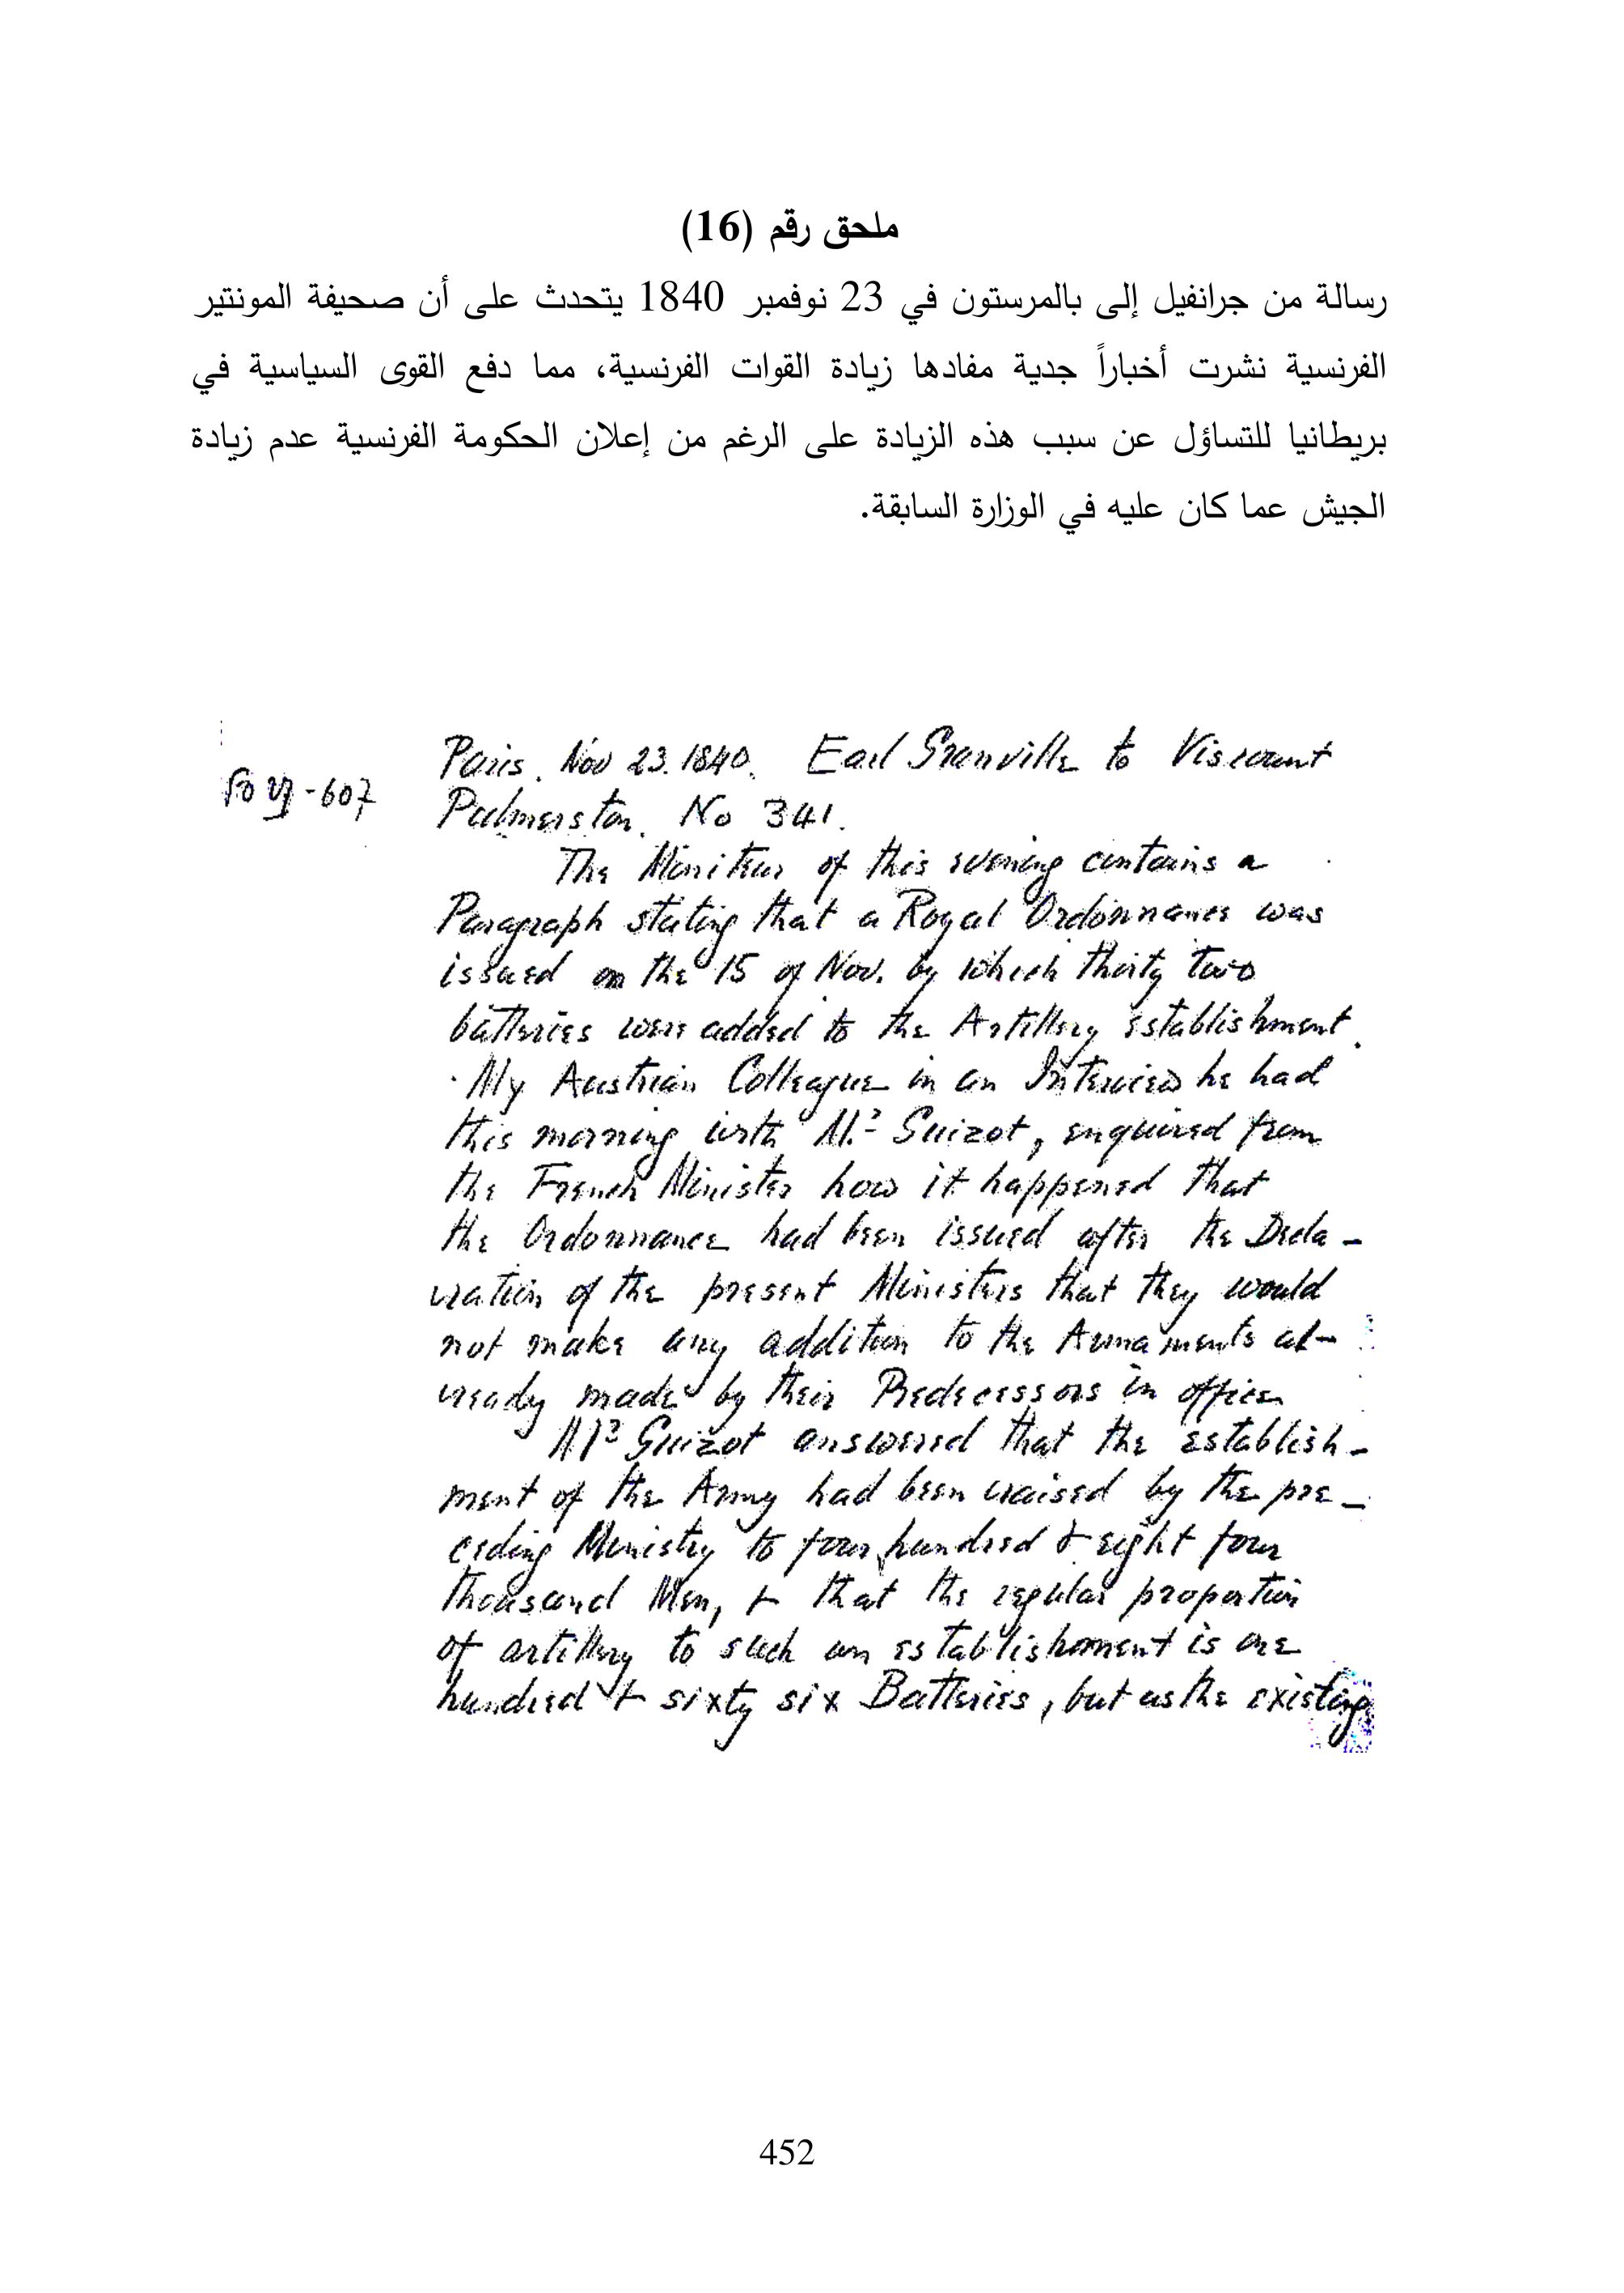 ملحق رقم (16)
رسالة من جرانفيل إلى بالمرستون في 23 نوفمبر 1840 يتحدث على أن صحيفة المونتير
الفرنسية نشرت أخباراً جدية مفادها زيادة القوات الفرنسية، مما دفع القوى السياسية في
بريطانيا للتساؤل عن سبب هذه الزيادة على الرغم من إعلان الحكومة الفرنسية عدم زيادة
الجيش عما كان عليه في الوزارة السابقة.
Paris. Nov 23. 1840. Earl Granville to Viscount
Palmerston. No 341.
The Moniteur of this evening contains a
Paragraph stating that a Royal Ordonnance was
issued on the 15 of Nov. by which thirty two
batteries were added to the Artillery establishment.
My Austrian Colleague in an Interview he had
this morning with M. Guizot, enquired from
the French Minister how it happened that
the Ordonnance had been issued after the Decla-
ration of the present Ministers that they would
not make any addition to the Armaments al-
ready made by their Predecessors in office
M. Guizot answered that the establish-
ment of the Army had been raised by the pre-
ceding Ministry to four hundred & eight four
thousand Men, & that the regular proportion
of artillery to such an establishment is one
hundred & sixty six Batteries, but as the existing
452